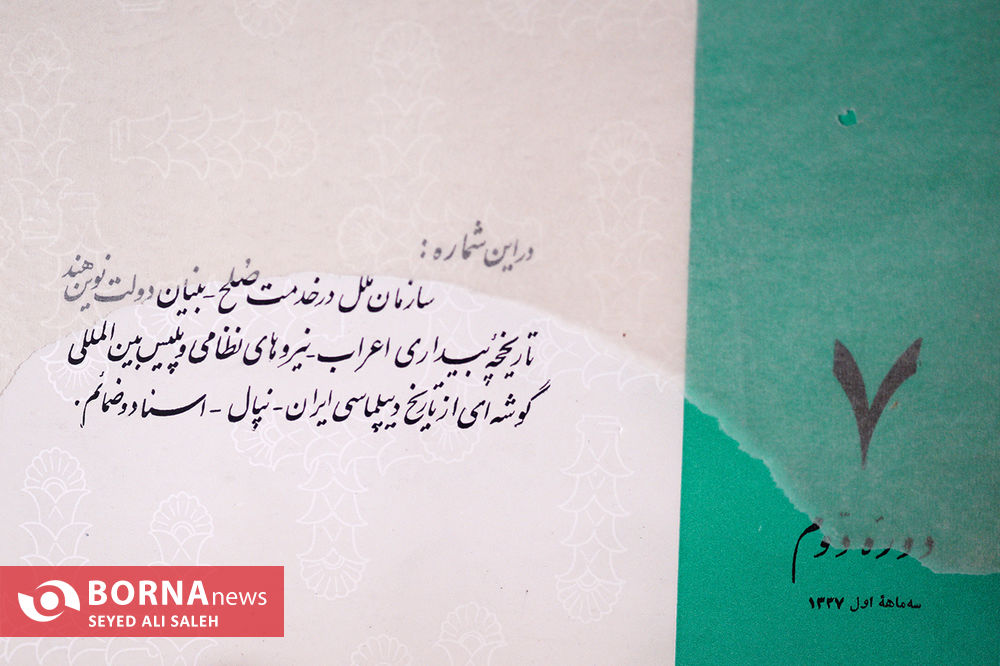 در این شماره :
سازمان ملل در خدمت صُلح - بنیان دولت نوین هند
تاریخچهٔ بیداری اعراب - نیروهای نظامی و پلیس بین المللی
گوشه ای از تاریخ دیپلماسی ایران - نپال - اسناد و ضمائم .
۷
دورهٔ دوّم
سه ماههٔ اول ۱۳۳۷
BORNA news
SEYED ALI SALEH